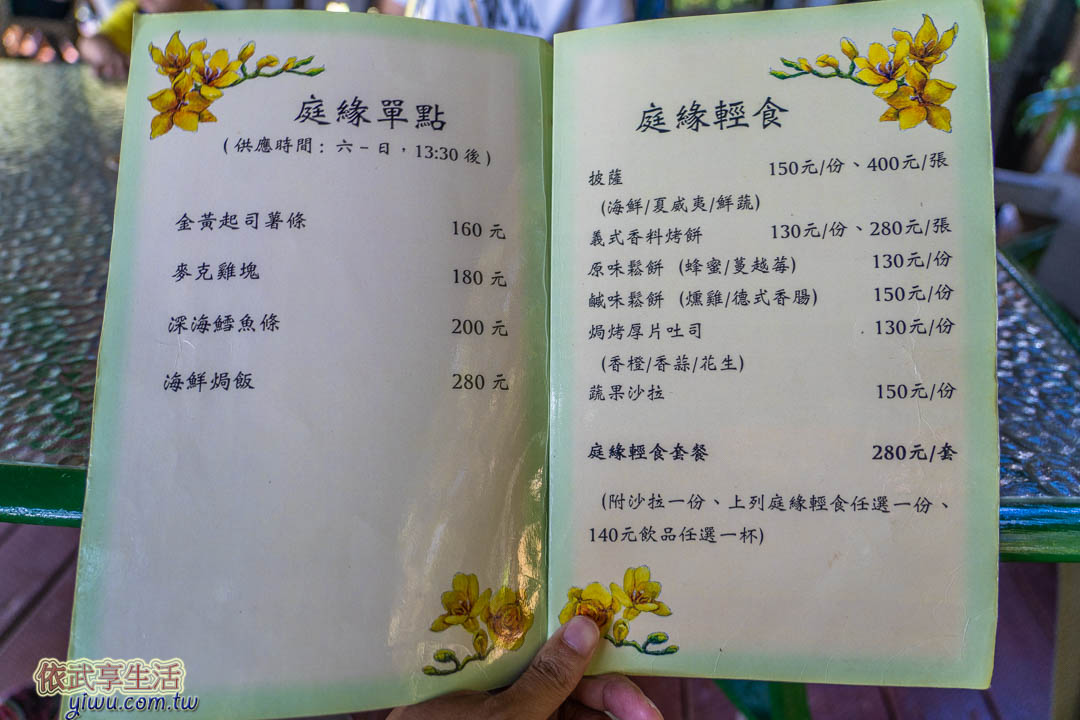 庭緣單點
(供應時間：六－日，13:30 後)
金黃起司薯條 160 元
麥克雞塊 180 元
深海鱈魚條 200 元
海鮮焗飯 280 元
庭緣輕食
披薩 150元/份、400元/張
(海鮮/夏威夷/鮮蔬)
義式香料烤餅 130元/份、280元/張
原味鬆餅 (蜂蜜/蔓越莓) 130元/份
鹹味鬆餅 (燻雞/德式香腸) 150元/份
焗烤厚片吐司 130元/份
(香橙/香蒜/花生)
蔬果沙拉 150元/份
庭緣輕食套餐 280元/套
(附沙拉一份、上列庭緣輕食任選一份、
140元飲品任選一杯)
依武享生活
yiwu.com.tw